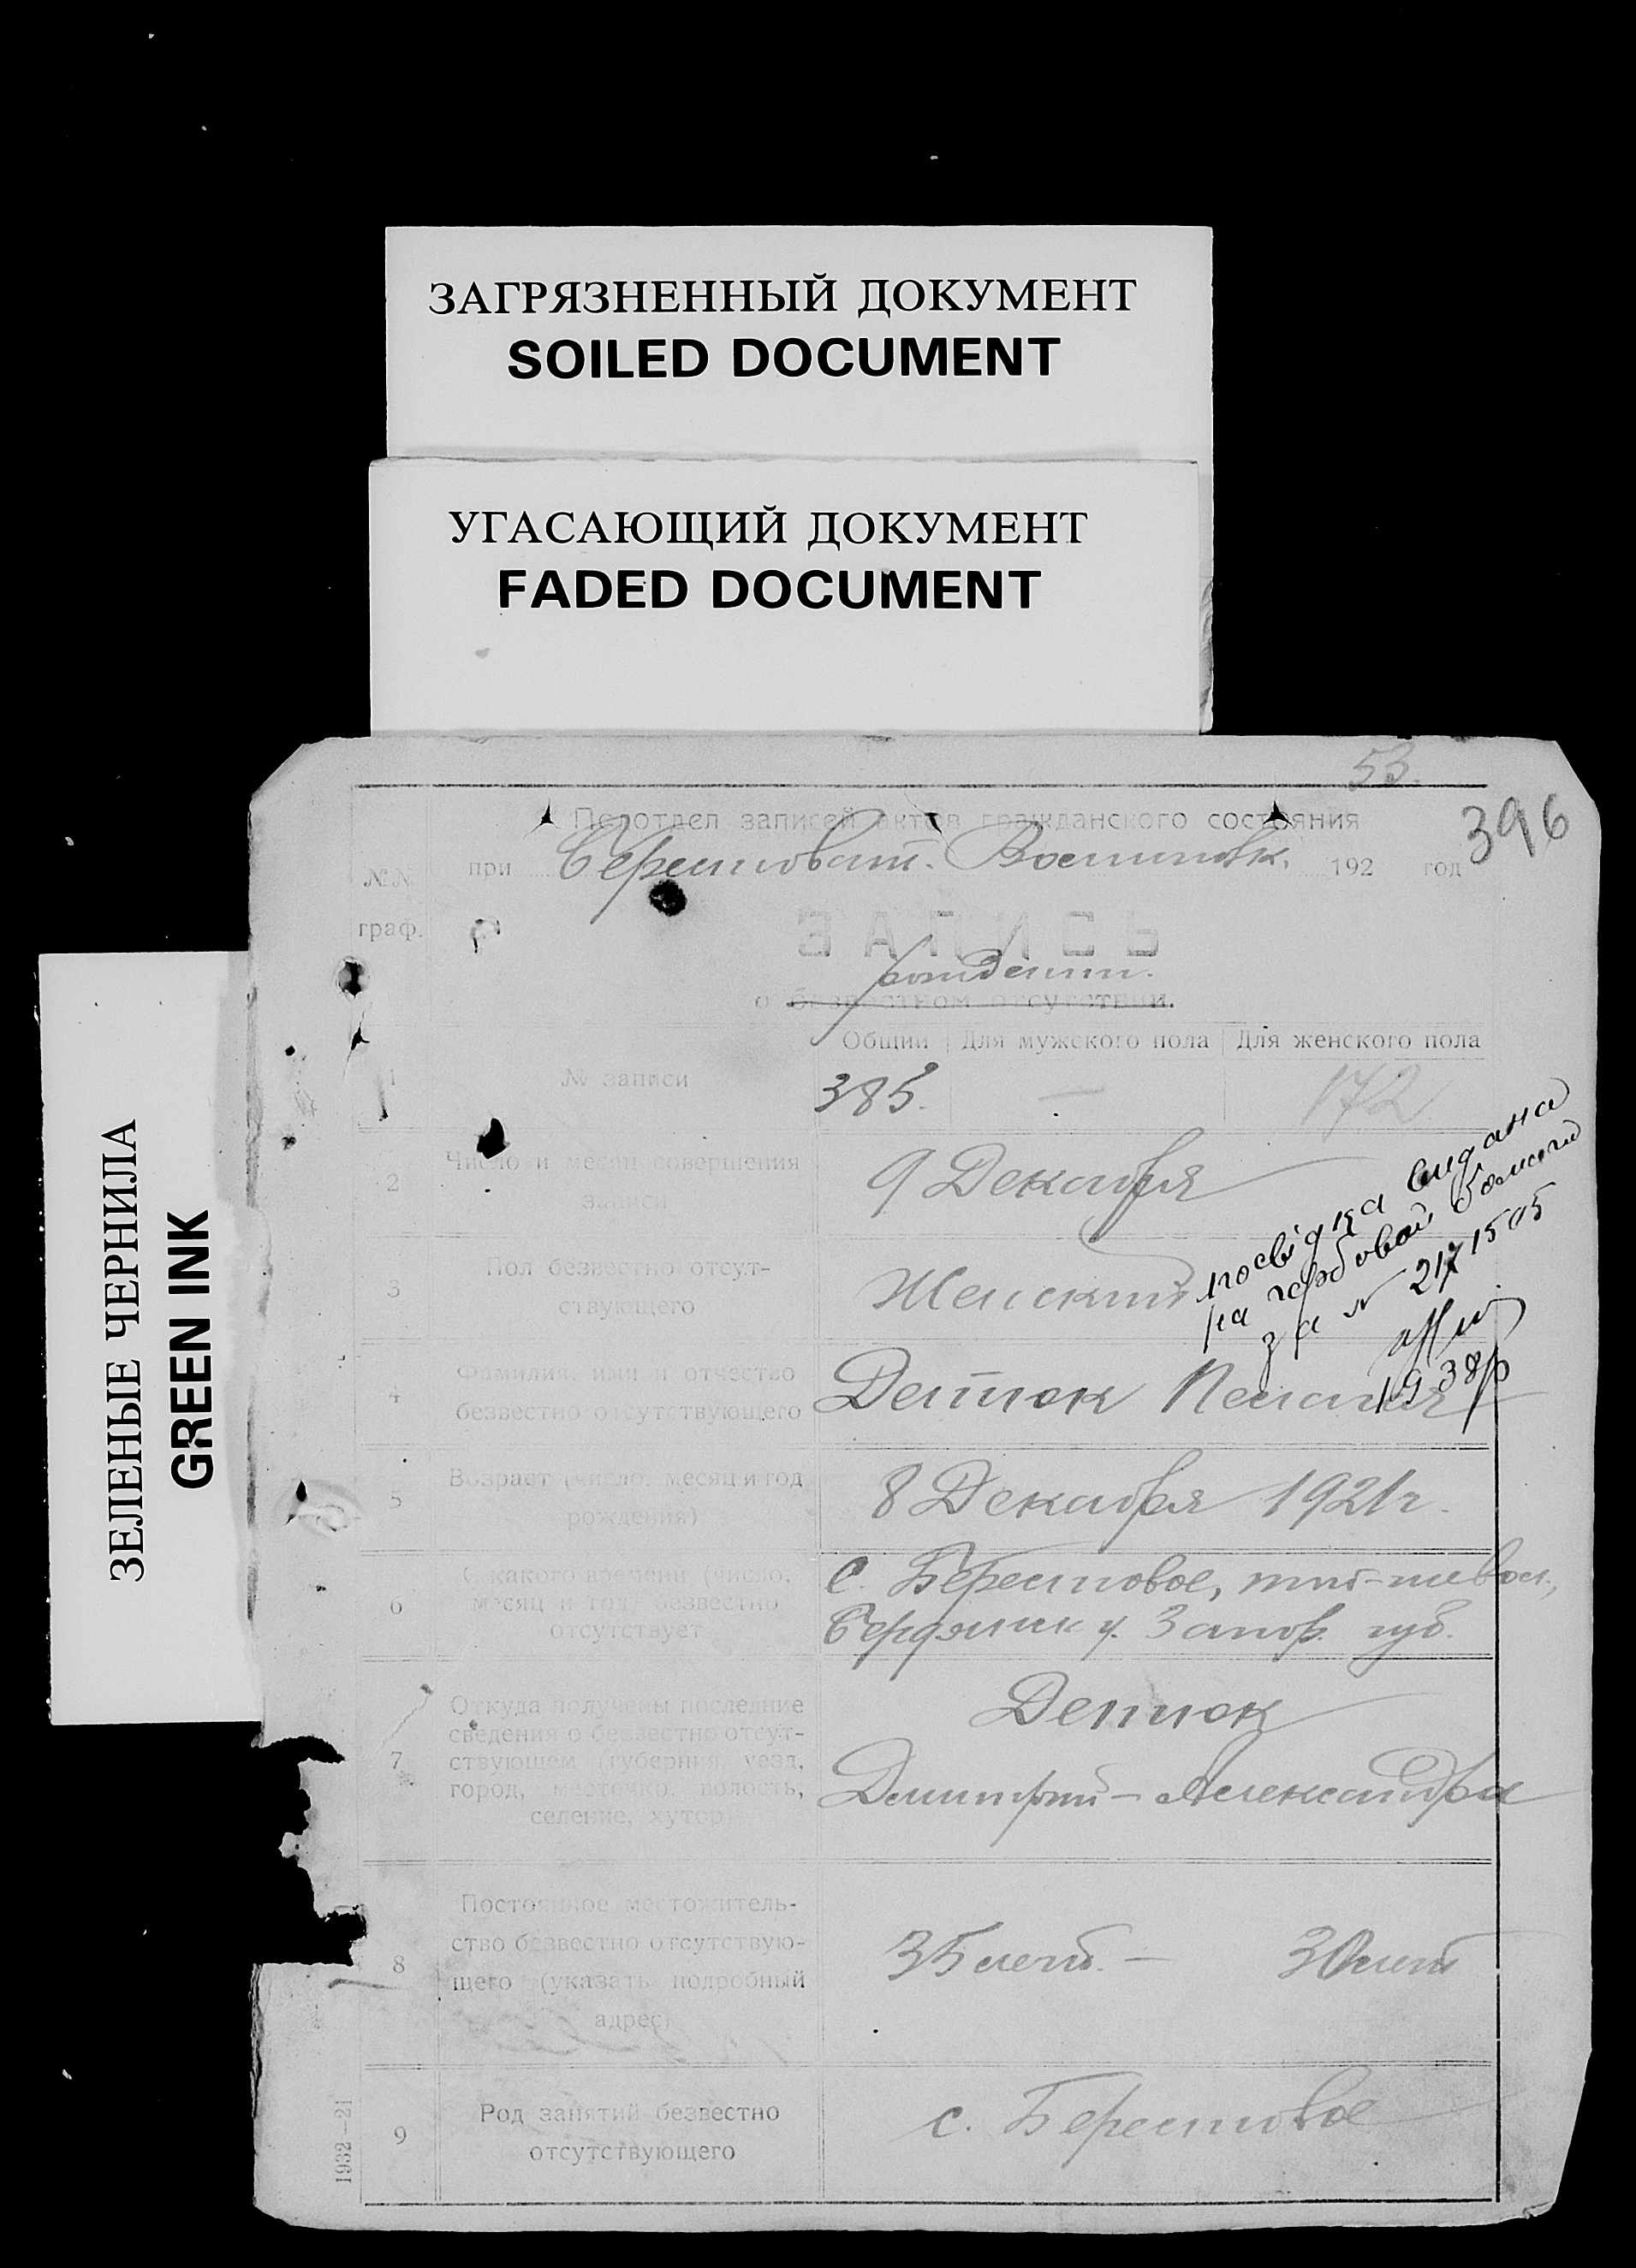 ЗАГРЯЗНЕННЫЙ ДОКУМЕНТ
SOILED DOCUMENT
УГАСАЮЩИЙ ДОКУМЕНТ
FADED DOCUMENT
ЗЕЛЕНЫЕ ЧЕРНИЛА
GREEN INK
53.
396
Подотдел записей актов гражданского состояния
при Берестоват. 192 год
№№ граф.
ЗАПИСЬ
рождении.
о безвестном отсутствии.
Общий Для мужского пола Для женского пола
1 № записи 385. — 172
2 Число и месяц совершения
записи
9 Декабря
3 Пол безвестно отсут-
ствующего
Женский
посвідка видана
на гербовой
за № 2171505
1938р
4 Фамилия, имя и отчество
безвестно отсутствующего
Пелагия
5 Возраст (число, месяц и год
рождения)
8 Декабря 1921 г.
6 С какого времени (число,
месяц и год) безвестно
отсутствует
с. Берестовое,
Бердянск у. Запор. губ.
7 Откуда получены последние
сведения о безвестно отсут-
ствующем (губерния, уезд,
город, местечко, волость,
селение, хутор)
Дмитрий — Александра
8 Постоянное местожитель-
ство безвестно отсутствую-
щего (указать подробный
адрес)
35 лет. — 30 лет
9 Род занятий безвестно
отсутствующего
с. Берестовое
1932—21